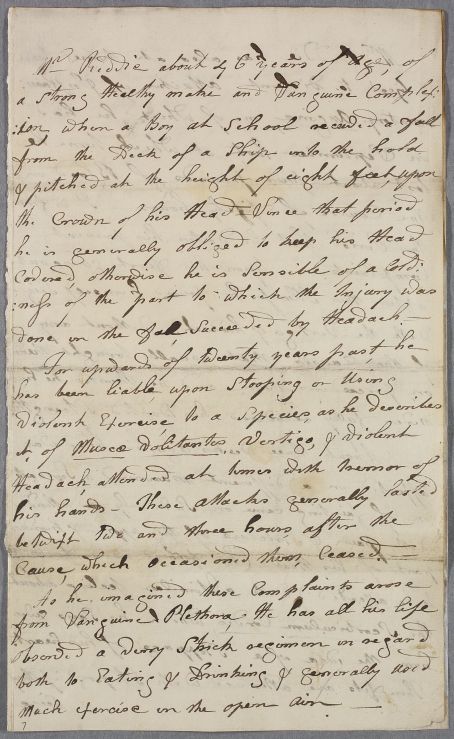 Mr Kiddie about 46 years of Age, of
a Strong Healthy make and Sanguine Complex:
:ion when a Boy at School received a fall
from the Deck of a Ship into the hold
& pitched at the height of eight feet, upon
the Crown of his Head. Since that period
he is generally obliged to keep his Head
Covered otherwise he is Sensible of a Cold:
:ness of the part to which the Injury was
done in the fall, Succeeded by Headach —
For upwards of twenty years past, he
has been liable upon Stooping or Using
Violent Exercise to a Species, as he describes
it, of Muscæ Volitantes Vertigo, & Violent
Headach, attended at times with tremor of
his hands — These attacks generally lasted
betwixt two and three hours, after the
Cause, which occasioned them, Ceased. —
As he imagined these Complaints arose
from Sanguine Plethora He has all his life
observed a very Strict regimen in regard
both to Eating & Drinking & generally used
much exercise in the open air —